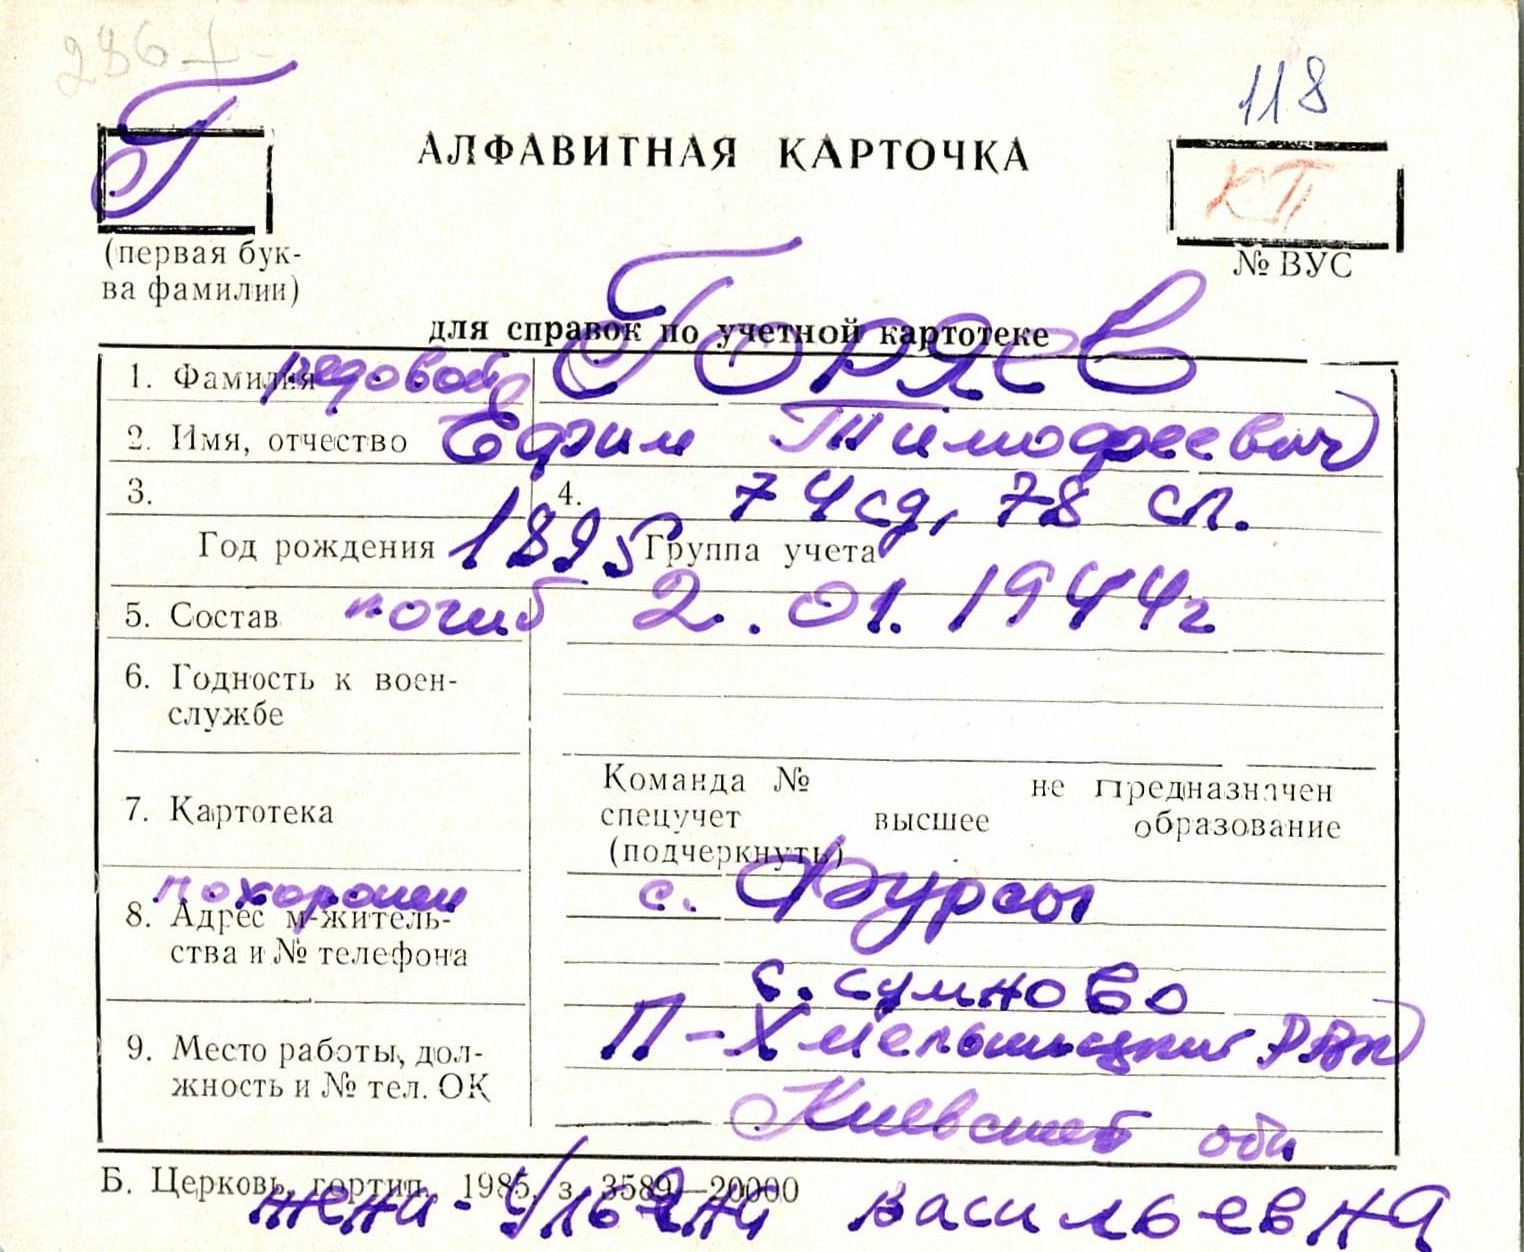 286 +
118
Г
АЛФАВИТНАЯ КАРТОЧКА
КП
(первая бук-
ва фамилии)
№ ВУС
для справок по учетной картотеке
1. Фамилия рядовой Горяев
2. Имя, отчество Ефим Тимофеевич
3. 4. 74 сд, 78 сп.
Год рождения 1895 Группа учета
5. Состав погиб 2.01.1944г
6. Годность к воен-
службе
Команда № не предназначен
7. Картотека спецучет высшее образование
(подчеркнуть)
похоронен с. Фурсы
8. Адрес м-житель-
ства и № телефона
с. сумново
9. Место работы, дол-
жность и № тел. ОК
П-Хмельницкий РВК
Киевской обл
Б. Церковь, гортип. 1985, з. 3589—20000
жена - Васильевна